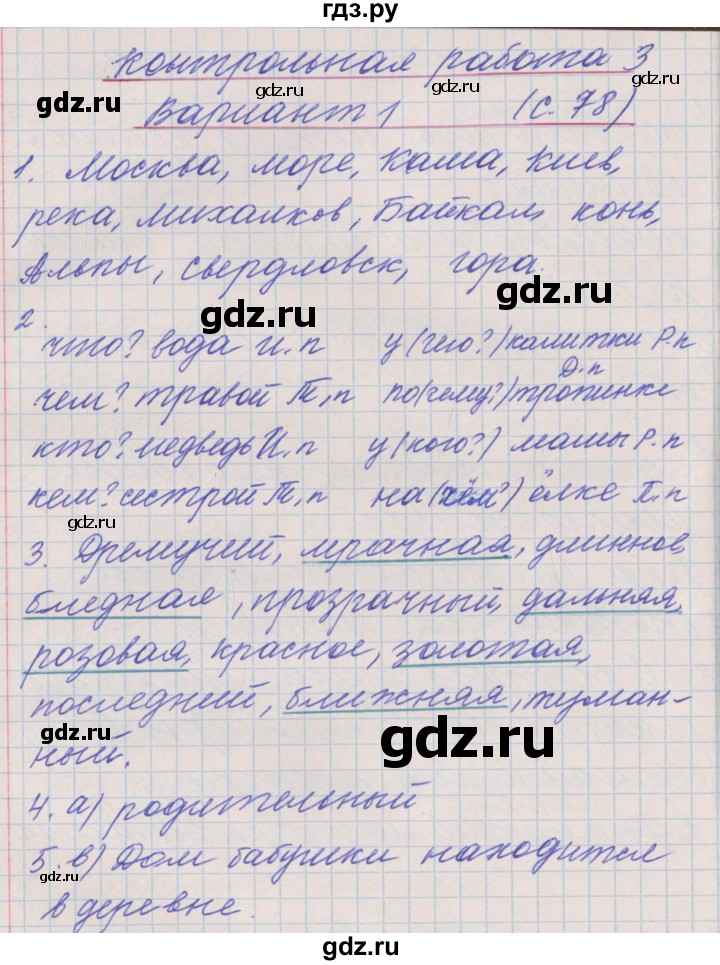 гдз.ру
Контрольная работа 3
gdz.ru
gdz.ru
gdz.ru
Вариант 1 (с. 78)
1. Москва, море, Кама, Киев,
река, Михалков, Байкал, конь,
Альпы, Свердловск, гора.
gdz.ru
gdz.ru
2.
что? вода И.п у (чего?) калитки Р.п
Д.п
чем? травой Т.п по(чему?) тропинке
кто? медведь И.п у (кого?) мамы Р.п
кем? сестрой Т.п на (чём?) ёлке П.п
gdz.ru
gdz.ru
3. Дремучий, мрачная, длинное,
бледная, прозрачный, дальняя,
розовая, красное, золотая,
последний, ближняя, туман-
gdz.ru
gdz.ru
ный.
4. а) родительный
5. в) Дом бабушки находится
gdz.ru
gdz.ru
в деревне.
gdz.ru